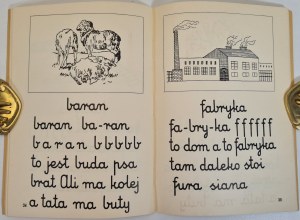 baran
baran ba-ran
b a r a n b b b b b
to jest buda psa
brat Ali ma kolej
a tata ma buty
fabryka
fa-bry-ka f f f f f f
to dom a to fabryka
tam daleko stoi
fura siana